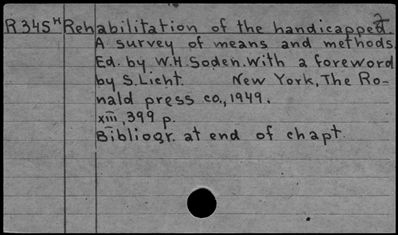 R345H Rehabilitation of the handicapped.
A survey of means and methods.
Ed. by W.H.Soden. With a foreword
by S.Licht. New York, The Ro-
nald press co., 1949.
xiii, 399 p.
Bibliogr. at end of chapt.